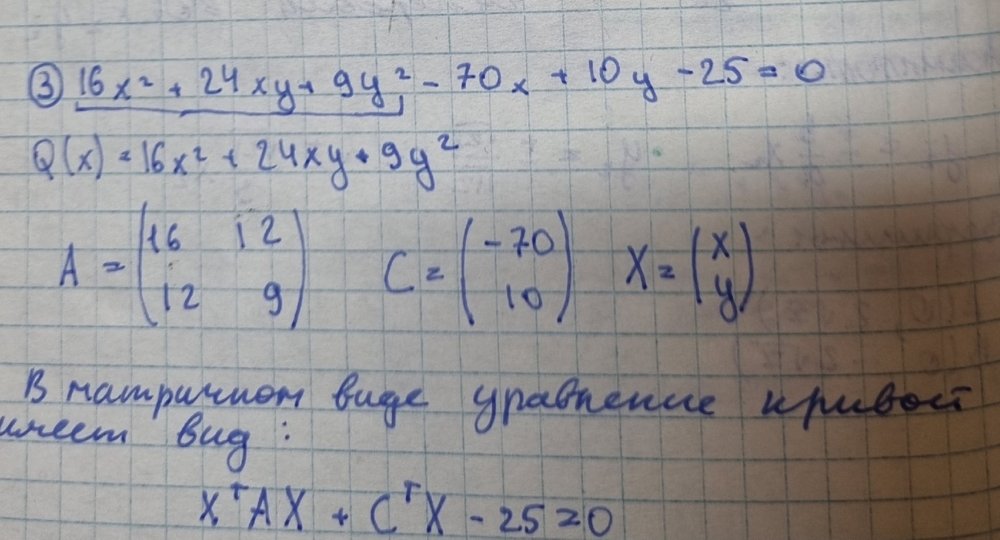 ③ 16x² + 24xy + 9y² - 70x + 10y - 25 = 0
Q(x) = 16x² + 24xy + 9y²
A = (16 12
12 9) C = (-70
10) X = (x
y)
В матричном виде уравнение кривой
имеет вид:
XᵀAX + CᵀX - 25 = 0